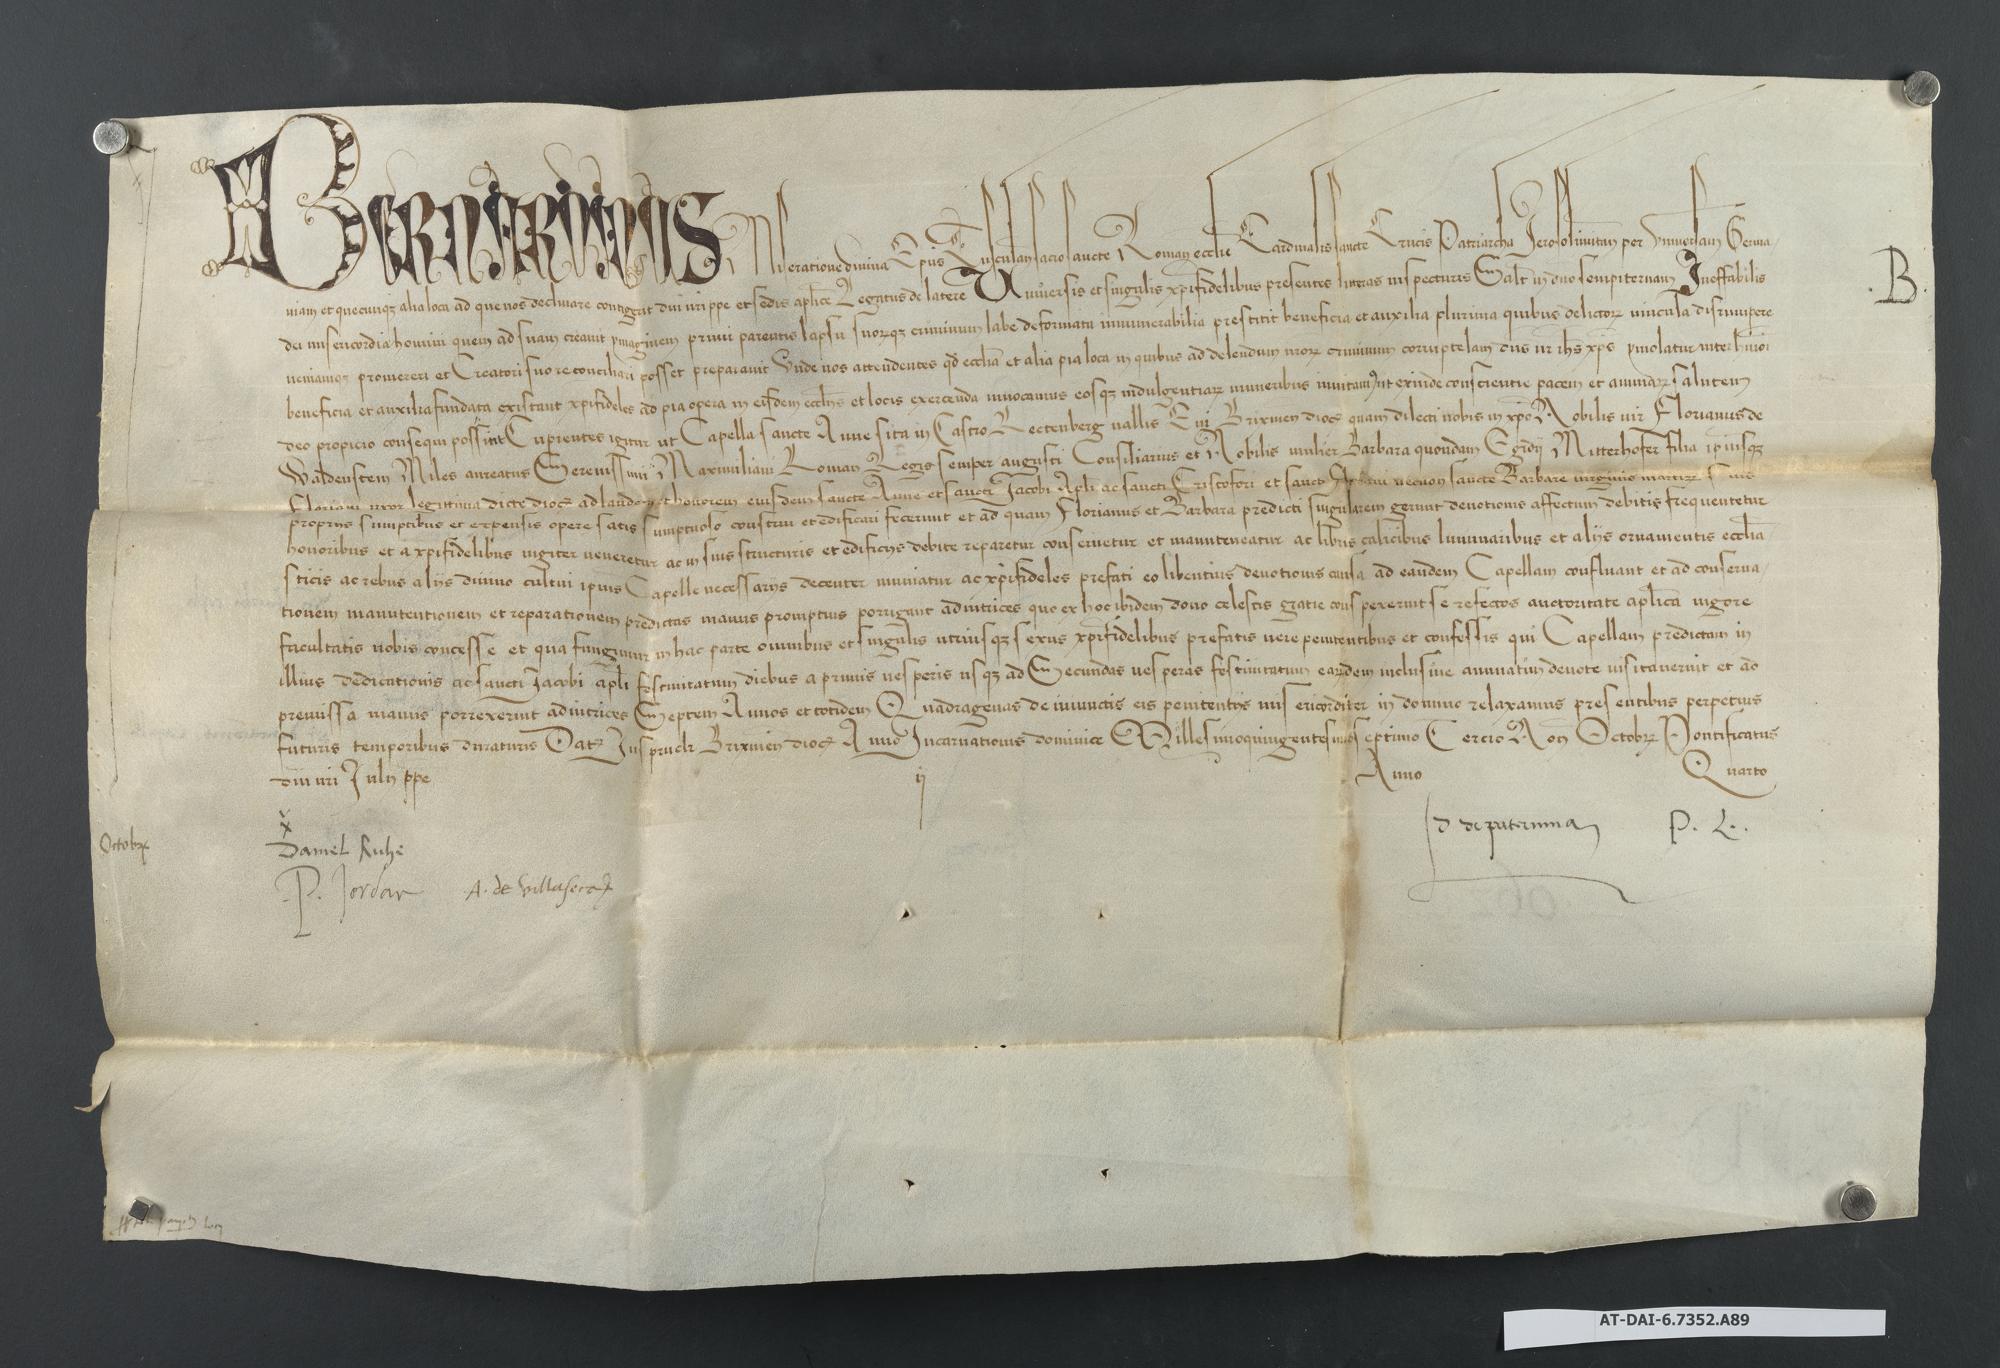 BERNARDINUS Miseratione divina Epus Tusculan sacrosancte Roman ecclie Cardinalis sancte Crucis Patriarcha Jerosolimitan per universam Germa
niam et quecunqz alia loca ad que nos declinare contigerit dni nri ppe et sedis aplice Legatus de latere Universis et singulis xpifidelibus presentes litteras inspecturis Salt in dno sempiternam Ineffabilis
dei misericordia homini quem ad suam creavit ymaginem primi parentis lapsu suorqz criminum labe deformata innumerabilia prestitit beneficia et auxilia plurima quibus delictorz vincula disrumpere
veniamqz promereri et Creatori suo reconciliari posset preparavit Unde nos attendentes qd ecclia et alia pia loca in quibus ad delendum nrorz criminum corruptelam dns nr ihs xps ymolatur inter hmoi
beneficia et auxilia fundata existant xpifideles ad pia opera in eisdem eccliis et locis exercenda invocamus eosqz indulgentiarz muneribus invitamus ut exinde conscientie pacem et animarz salutem
deo propicio consequi possint Cupientes igitur ut Capella sancte Anne sita in Castro Rectenberg vallis Eni Brixinen dioc quam dilecti nobis in xpo Nobilis vir Florianus de
Waldenstein Miles aureatus Serenissimi Maximiliani Roman Regis semper augusti Consiliarius et Nobilis mulier Barbara quondam Egidij Mitterhofer filia ipiusqz
Floriani uxor legittima dicte dioc ad laudem et honorem eiusdem sancte Anne et sancti Jacobi Apli ac sancti Cristofori et sancti necnon sancte Barbare virginis martirz suis
proprijs sumptibus et expensis opere satis sumptuoso construi et edificari fecerunt et ad quam Florianus et Barbara predicti singularem gerunt devotionis affectum debitis frequentetur
honoribus et a xpifidelibus iugiter veneretur ac in suis structuris et edificijs debite reparetur conservetur et manuteneatur ac libris calicibus luminaribus et alijs ornamentis ecclia
sticis ac rebus alijs divino cultui ipius Capelle necessarijs decenter muniatur ac xpifideles prefati eo libentius devotionis causa ad eandem Capellam confluant et ad conserva
tionem manutentionem et reparationem predictas manus promptius porrigant adiutrices quo ex hoc ibidem dono celestis gratie conspexerint se refectos auctoritate aplica vigore
facultatis nobis concesse et qua fungimur in hac parte omnibus et singulis utriusqz sexus xpifidelibus prefatis vere penitentibus et confessis qui Capellam predictam in
illius dedicationis ac sancti Jacobi apli festivitatum diebus a primis vesperis usqz ad Secundas vesperas festivitatum earzdem inclusive annuatim devote visitaverint et ad
premissa manus porrexerint adiutrices Septem Annos et totidem Quadragenas de iniunctis eis penitentijs misericorditer in domino relaxamus presentibus perpetuis
futuris temporibus duraturis Dat Insprugk Brixinen dioc Anno Incarnationis dominice Millesimoquingentesimoseptimo Tercio Non Octobrz Pontificatus
dni nri Julij ppe ij Anno Quarto
B
Octobrz
x
Daniel Ruhe
P. Jordan A. de Villasecca
Jo de paterinna P. L.
AT-DAI-6.7352.A89